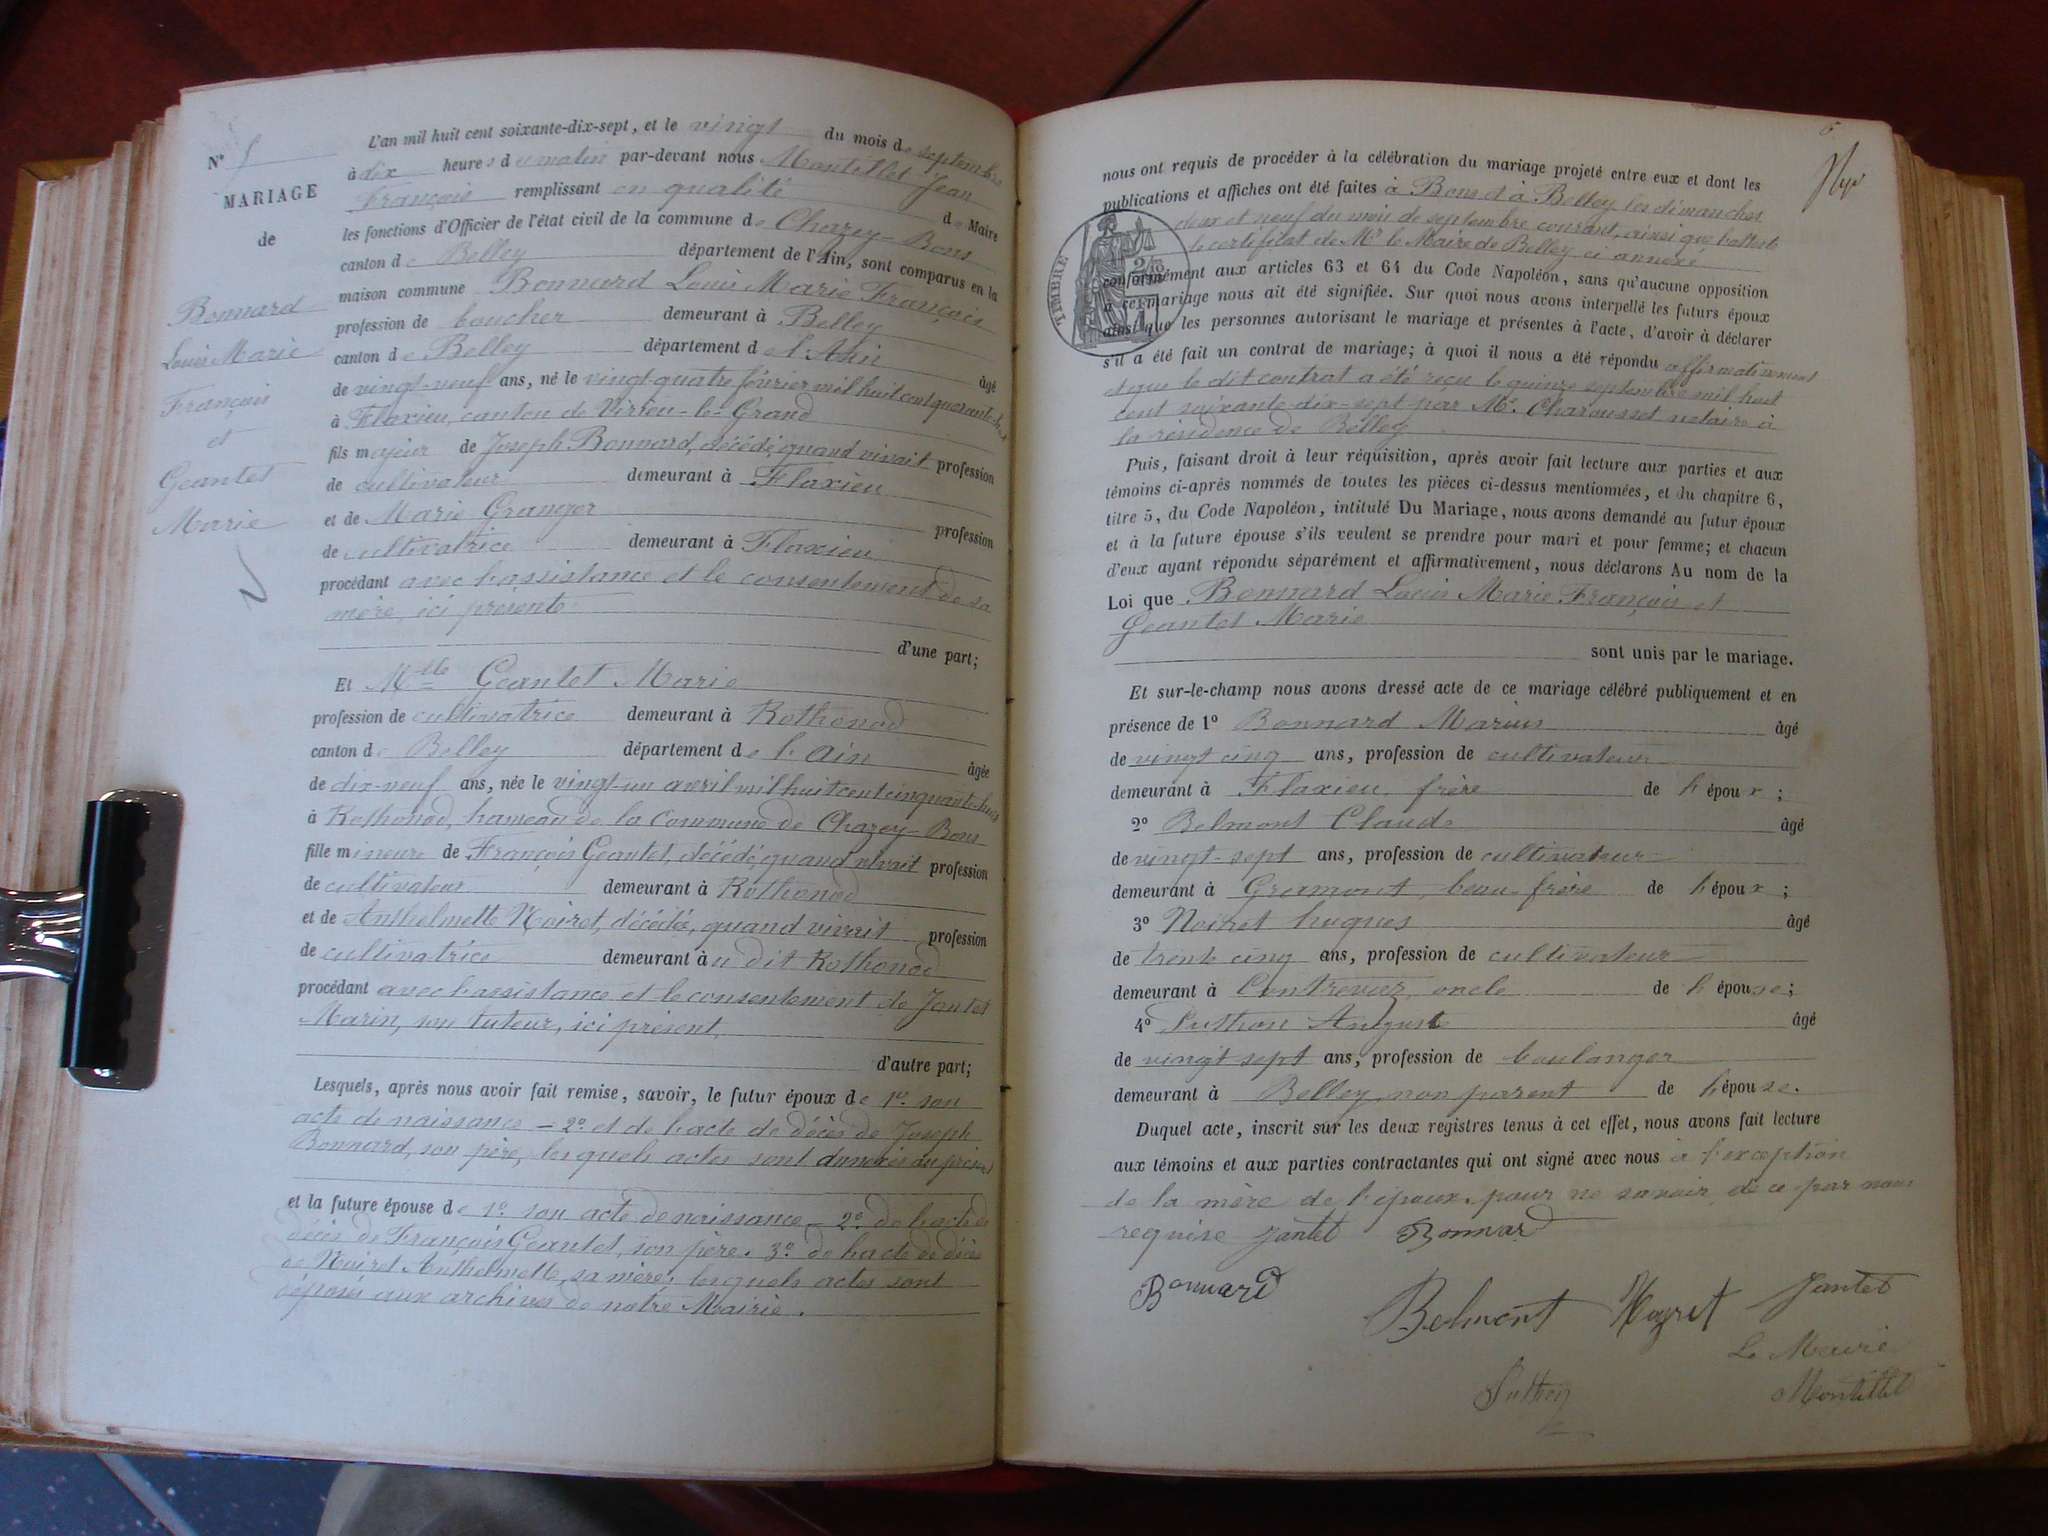 N°
MARIAGE
de
Bonnard
Louis Marie
François
et
Geantet
Marie
L'an mil huit cent soixante-dix-sept, et le vingt du mois de septembre
à dix heures du matin par-devant nous Montillet Jean
François remplissant en qualité de Maire
les fonctions d'Officier de l'état civil de la commune de Chazey-Bons
canton de Belley département de l'Ain, sont comparus en la
maison commune Bonnard Louis Marie François
profession de boucher demeurant à Belley
canton de Belley département de l'Ain âgé
de vingt-neuf ans, né le vingt-quatre février mil huit cent quarante-huit
à Flaxieu, canton de Virieu-le-Grand
fils majeur de Joseph Bonnard, décédé, quand vivait profession
de cultivateur demeurant à Flaxieu
et de Marie Granger profession
de cultivatrice demeurant à Flaxieu
procédant avec l'assistance et le consentement de sa
mère, ici présente
d'une part;
Et Mlle Geantet Marie
profession de cultivatrice demeurant à Rothonod
canton de Belley département de l'ain âgée
de dix-neuf ans, née le vingt-un avril mil huit cent cinquante-huit
à Rothonod, hameau de la Commune de Chazey-Bons
fille mineure de François Geantet, décédé, quand vivait profession
de cultivateur demeurant à Rothonod
et de Anthelmette Noiret, décédée, quand vivait profession
de cultivatrice demeurant au dit Rothonod
procédant avec l'assistance et le consentement de Jantet
Marin, son tuteur, ici présent,
d'autre part;
Lesquels, après nous avoir fait remise, savoir, le futur époux de 1°. son
acte de naissance - 2° et de l'acte de décès de Joseph
Bonnard, son père, lesquels actes sont annexés au présent
et la future épouse de 1°. son acte de naissance - 2°. de l'acte de
décès de François Geantet, son père. 3° de l'acte de décès
de Noiret Anthelmette, sa mère, lesquels actes sont
déposés aux archives de notre Mairie.
nous ont requis de procéder à la célébration du mariage projeté entre eux et dont les
publications et affiches ont été faites à Bons et à Belley les dimanches
deux et neuf du mois de septembre courant, ainsi que l'atteste
le certificat de Mr le Maire de Belley ci annexé
TIMBRE
conformément aux articles 63 et 64 du Code Napoléon, sans qu'aucune opposition
à ce mariage nous ait été signifiée. Sur quoi nous avons interpellé les futurs époux
ainsi que les personnes autorisant le mariage et présentes à l'acte, d'avoir à déclarer
s'il a été fait un contrat de mariage; à quoi il nous a été répondu affirmativement
et que le dit contrat a été reçu le quinze septembre mil huit
cent soixante-dix-sept par Me. Charousset notaire à
la résidence de Belley
Puis, faisant droit à leur réquisition, après avoir fait lecture aux parties et aux
témoins ci-après nommés de toutes les pièces ci-dessus mentionnées, et du chapitre 6,
titre 5, du Code Napoléon, intitulé Du Mariage, nous avons demandé au futur époux
et à la future épouse s'ils veulent se prendre pour mari et pour femme; et chacun
d'eux ayant répondu séparément et affirmativement, nous déclarons Au nom de la
Loi que Bonnard Louis Marie François et
Geantet Marie
sont unis par le mariage.
Et sur-le-champ nous avons dressé acte de ce mariage célébré publiquement et en
présence de 1° Bonnard Marius âgé
de vingt cinq ans, profession de cultivateur
demeurant à Flaxieu, frère de l'époux;
2° Belmont Claude âgé
de vingt-sept ans, profession de cultivateur
demeurant à Gramont, beau-frère de l'époux;
3° Noiret hugues âgé
de trente cinq ans, profession de cultivateur
demeurant à Contrevoz, oncle de l'épouse;
4° Suthon Auguste âgé
de vingt-sept ans, profession de boulanger
demeurant à Belley, non parent de l'épouse.
Duquel acte, inscrit sur les deux registres tenus à cet effet, nous avons fait lecture
aux témoins et aux parties contractantes qui ont signé avec nous à l'exception
de la mère de l'époux, pour ne savoir, de ce par nous
requise Jantet Bonnard
Bonnard
Belmont Jantet
Le Maire
Montillet